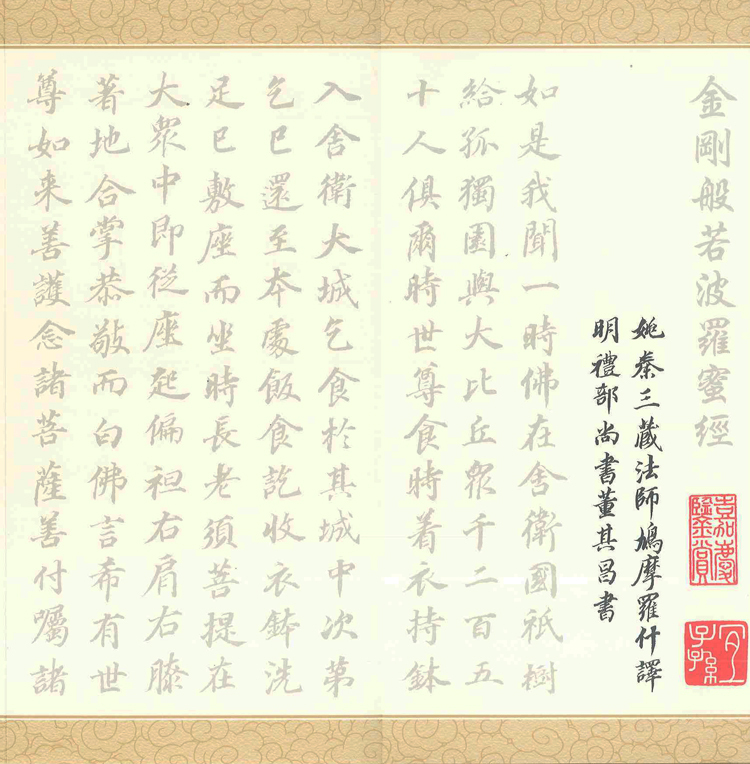 金剛般若波羅蜜經
嘉慶鑒賞
宜子孫
姚秦三藏法師鳩摩羅什譯
明禮部尚書董其昌書
如是我聞一時佛在舍衛國祇樹
給孤獨園與大比丘眾千二百五
十人俱爾時世尊食時着衣持鉢
入舍衛大城乞食於其城中次第
乞已還至本處飯食訖收衣鉢洗
足已敷座而坐時長老須菩提在
大眾中即從座起偏袒右肩右膝
著地合掌恭敬而白佛言希有世
尊如來善護念諸菩薩善付囑諸